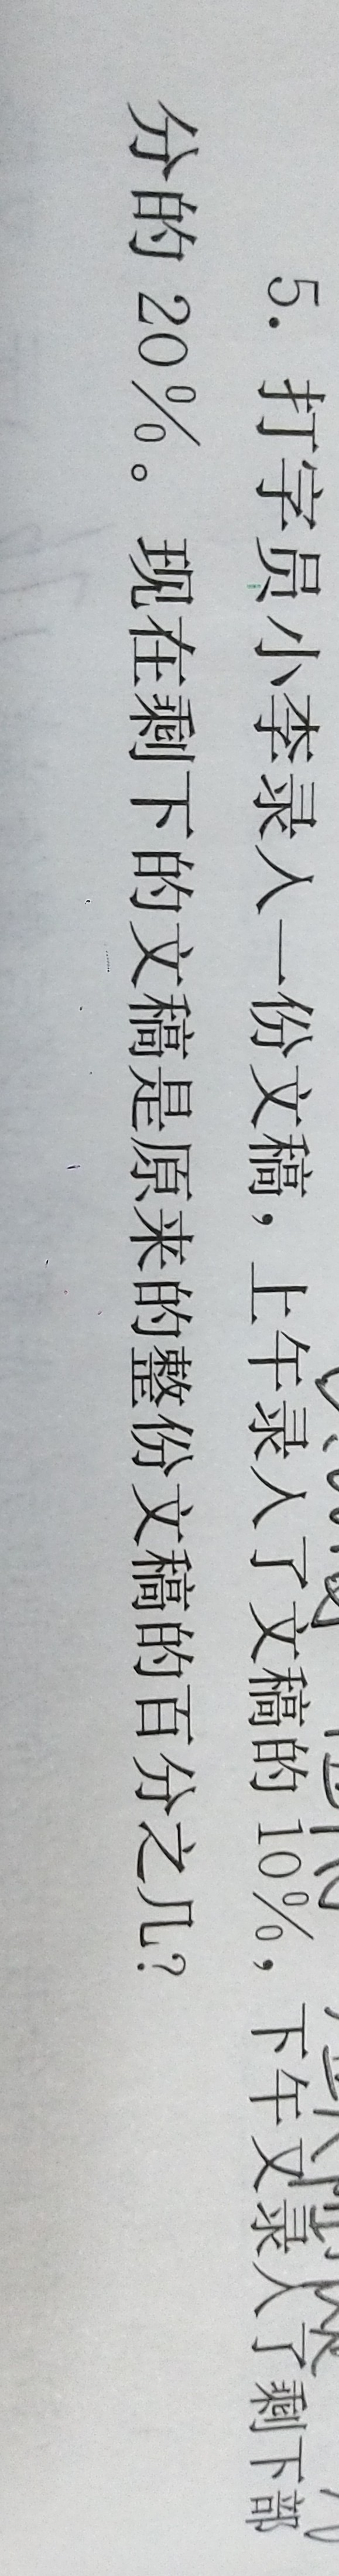 5. 打字员小李录入一份文稿，上午录入了文稿的 10%，下午又录入了剩下部
分的 20%。现在剩下的文稿是原来的整份文稿的百分之几？